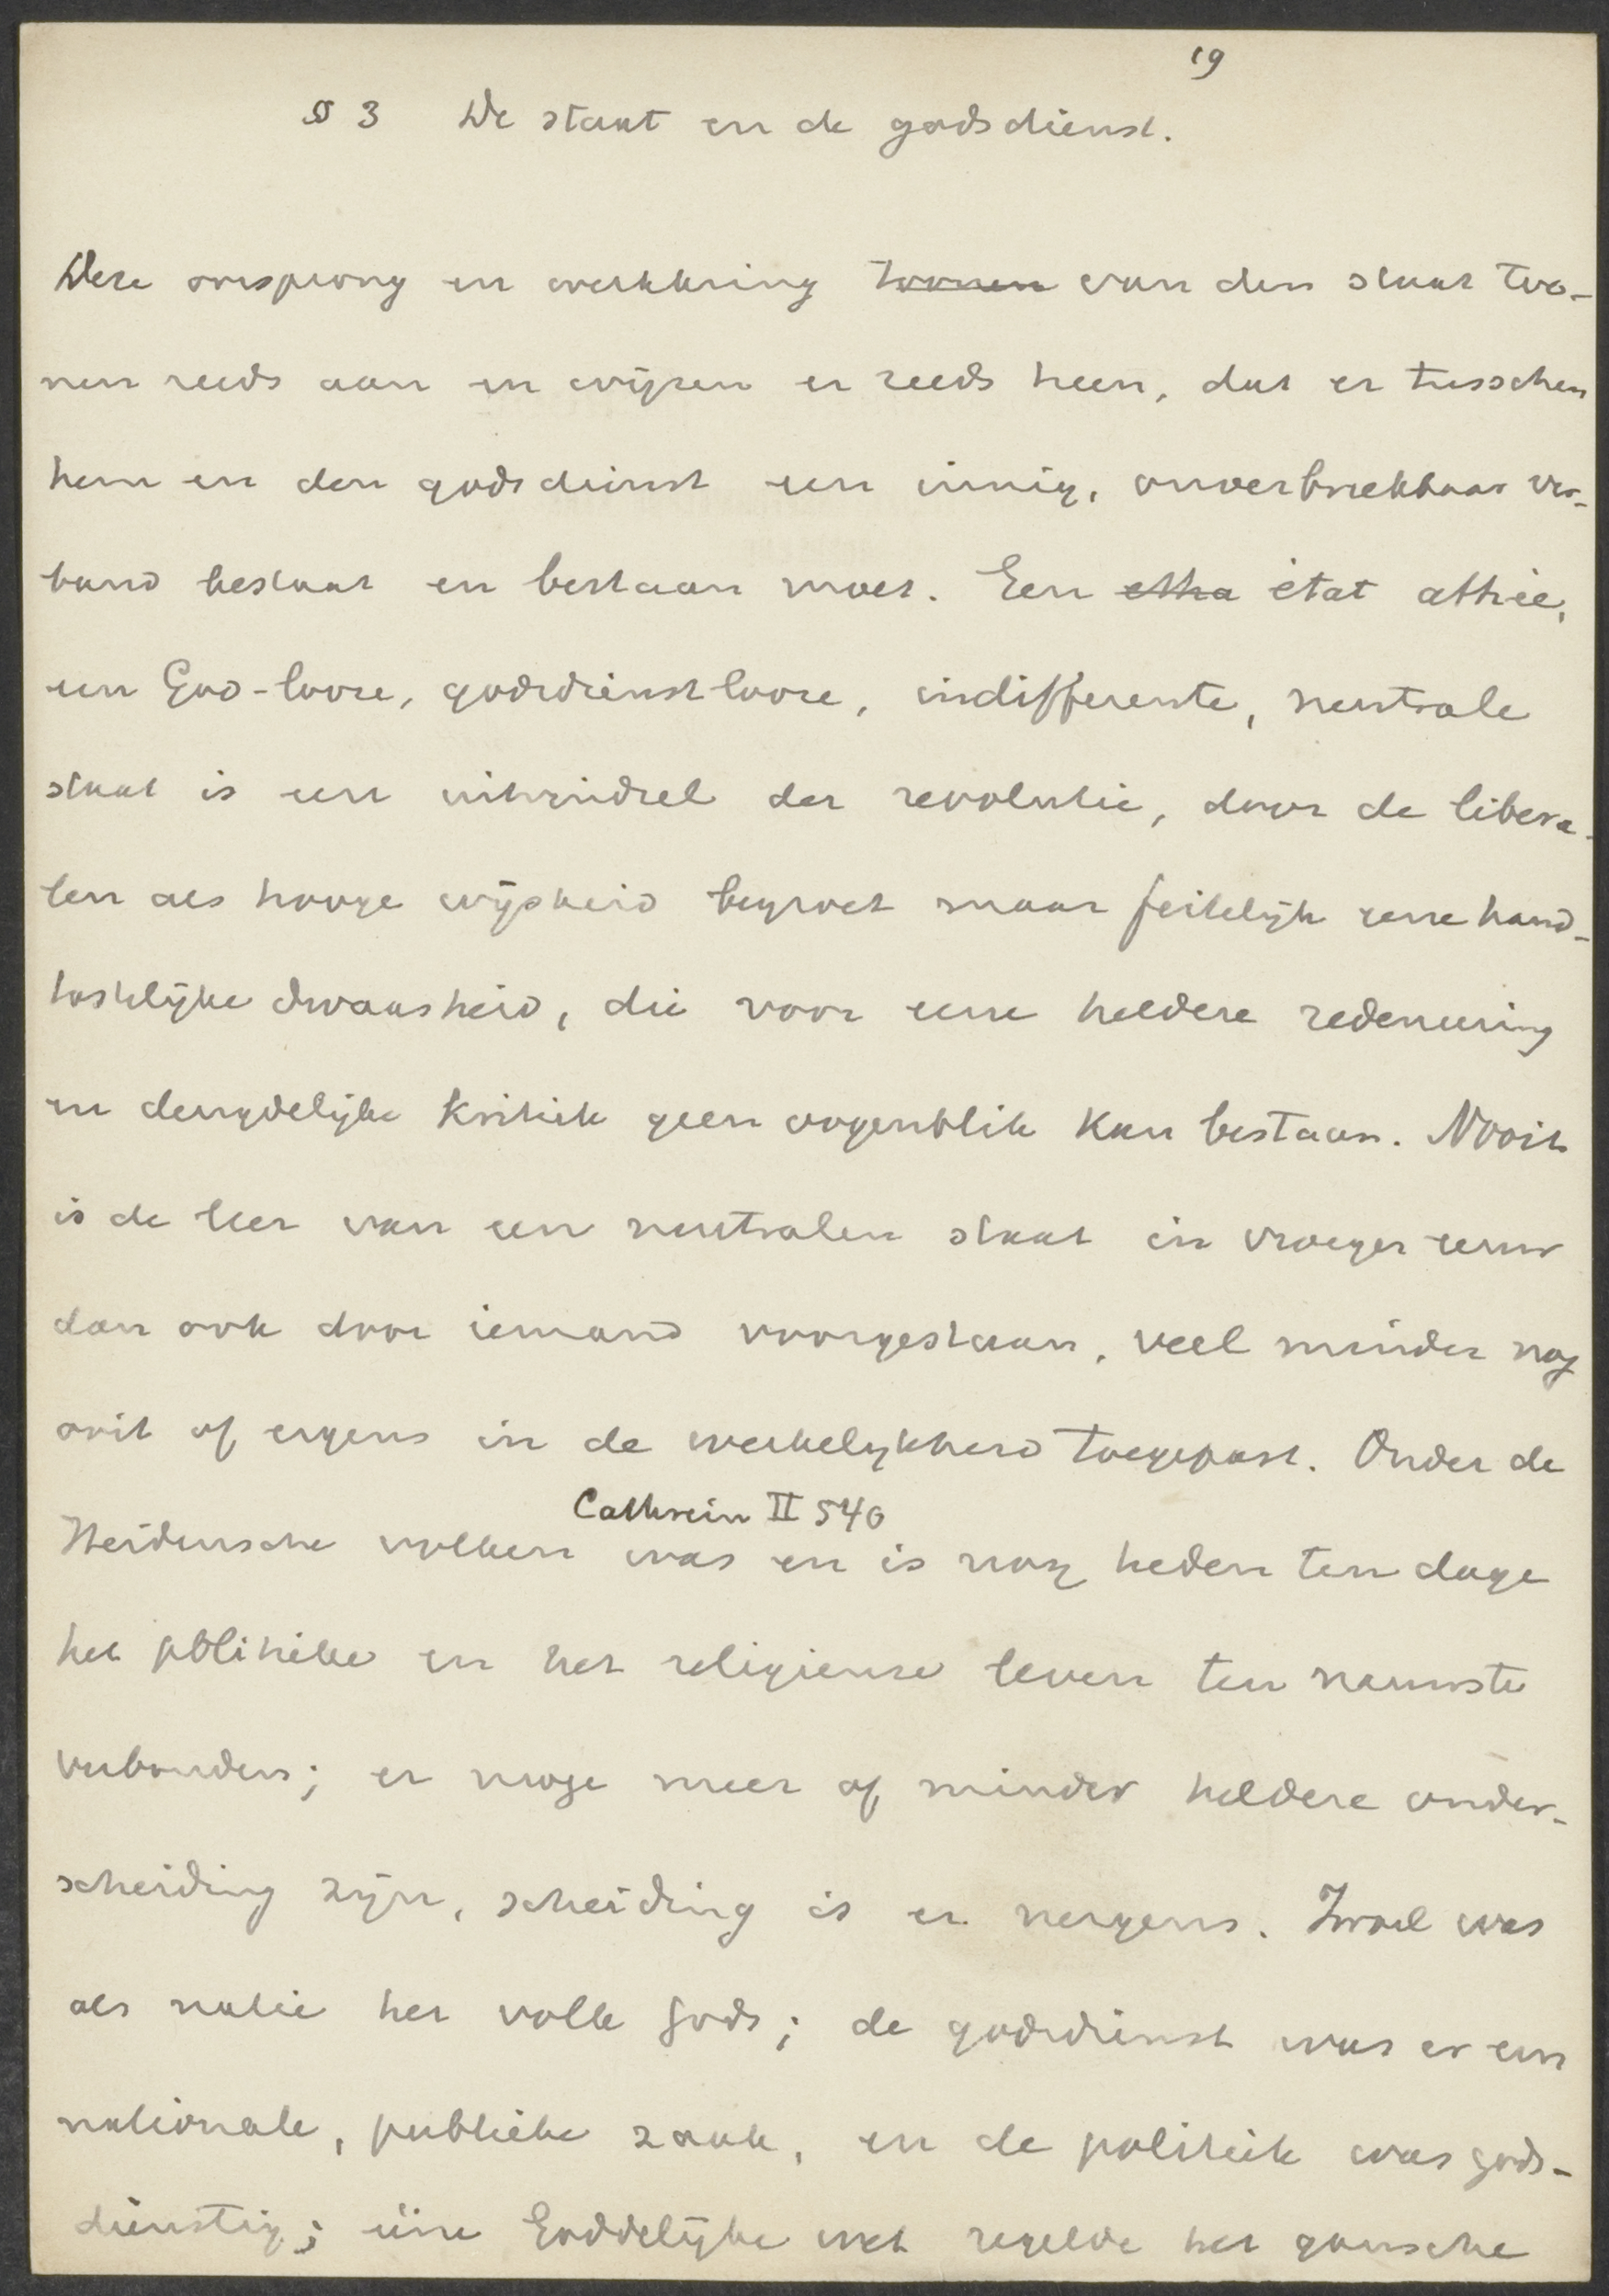 19
§ 3 De staat en de godsdienst.
Deze oorsprong en werkkring toonen van den staat too-
nen reeds aan en wijzen er reeds heen, dat er tusschen
hem en den godsdienst een innig, onverbreekbaar ver-
band bestaat en bestaan moet. Een etha état athée,
een God-looze, godsdienstlooze, indifferente, neutrale
staat is een uitvindsel der revolutie, door de libera-
len als hooge wijsheid begroet maar feitelijk eene hand-
tastelijke dwaasheid, die voor eene heldere redeneering
en deugdelijke kritiek geen oogenblik kan bestaan. Nooit
is de leer van een neutralen staat in vroeger eeuw
dan ook door iemand voorgestaan, veel minder nog
ooit of ergens in de werkelijkheid toegepast. Onder de
Cathrein II 540
Heidensche volken was en is nog heden ten dage
het politieke en het religieuse leven ten nauwste
verbonden; er moge meer of minder heldere onder-
scheiding zijn, scheiding is er nergens. Israel was
als natie het volk Gods; de godsdienst was er een
nationale, publieke zaak, en de politiek was gods-
dienstig; ééne Goddelijke wet regelde het gansche